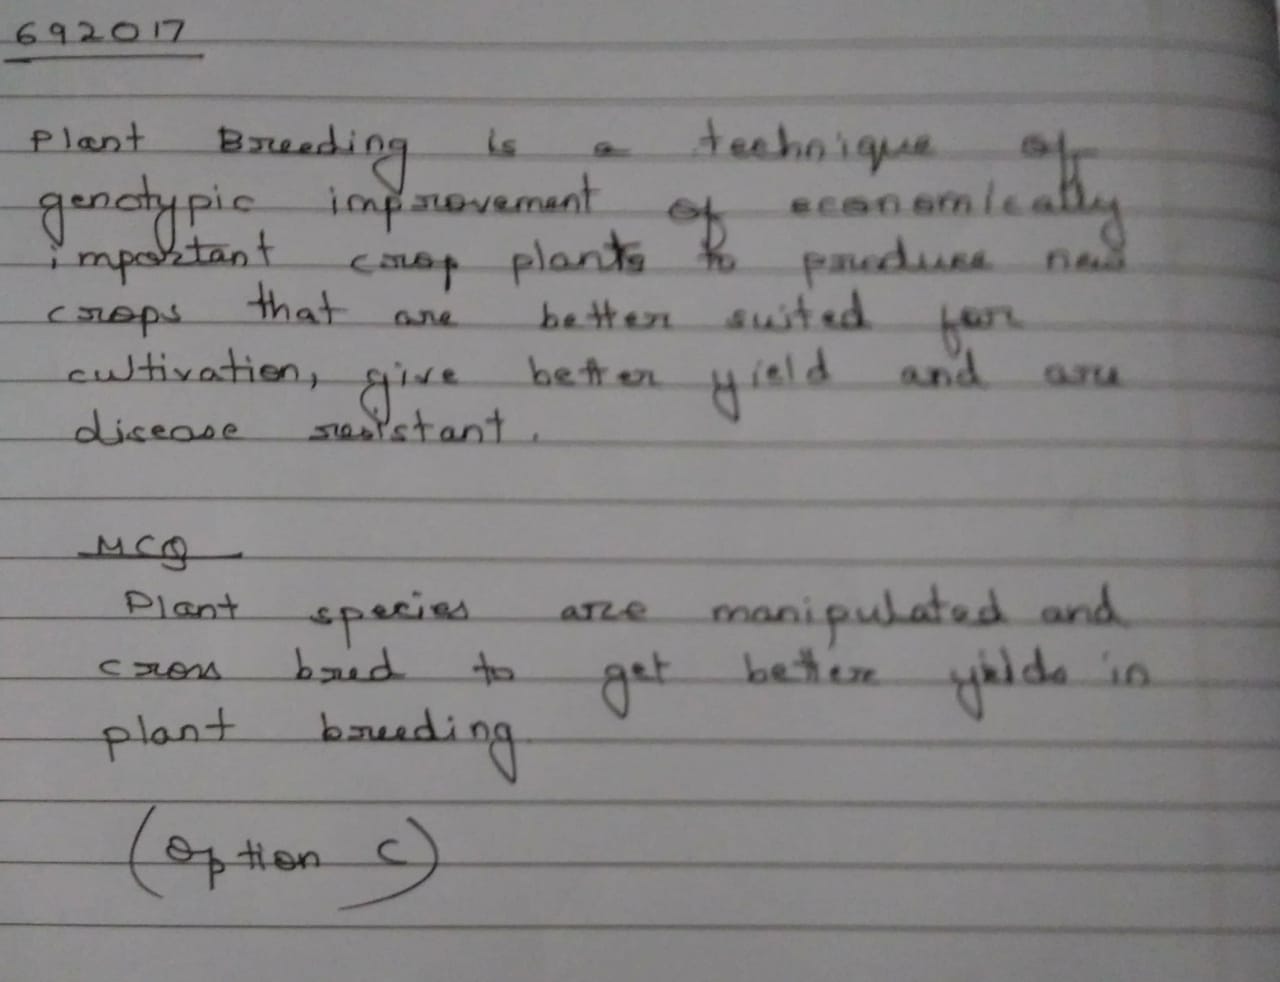 692017
Plant Breeding is a technique of
genotypic improvement of economically
important crop plants to produce new
crops that are better suited for
cultivation, give better yield and are
disease resistant.
MCQ
Plant species are manipulated and
cross bred to get better yields in
plant breeding.
(Option C)